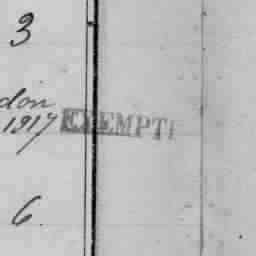 3
don
1917
EXEMPT
6.